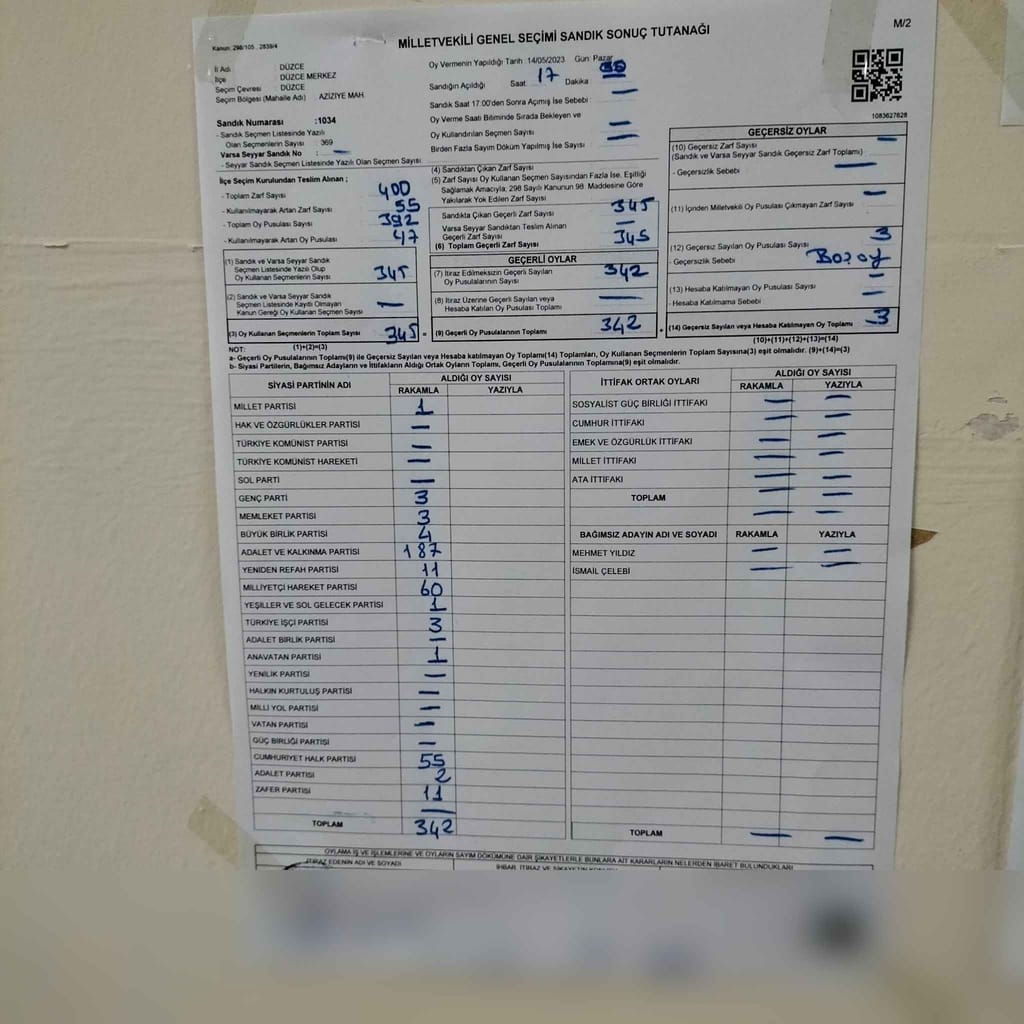 M/2
Kanun: 298/105 , 2839/4
MİLLETVEKİLİ GENEL SEÇİMİ SANDIK SONUÇ TUTANAĞI
İl Adı : DÜZCE
İlçe : DÜZCE MERKEZ
Seçim Çevresi : DÜZCE
Seçim Bölgesi (Mahalle Adı) : AZİZİYE MAH.
Oy Vermenin Yapıldığı Tarih : 14/05/2023 Gün: Pazar
Sandığın Açıldığı Saat 17 Dakika
Sandık Saat 17:00'den Sonra Açımış İse Sebebi : —
Oy Verme Saati Bitiminde Sırada Bekleyen ve
Oy Kullandırılan Seçmen Sayısı —
Birden Fazla Sayım Döküm Yapılmış İse Sayısı : —
1083627828
Sandık Numarası :1034
- Sandık Seçmen Listesinde Yazılı
Olan Seçmenlerin Sayısı : 369
Varsa Seyyar Sandık No : —
- Seyyar Sandık Seçmen Listesinde Yazılı Olan Seçmen Sayısı :
İlçe Seçim Kurulundan Teslim Alınan ;
- Toplam Zarf Sayısı 400
- Kullanılmayarak Artan Zarf Sayısı 55
- Toplam Oy Pusulası Sayısı 392
- Kullanılmayarak Artan Oy Pusulası 47
(1) Sandık ve Varsa Seyyar Sandık
Seçmen Listesinde Yazılı Olup
Oy Kullanan Seçmenlerin Sayısı 345
(2) Sandık ve Varsa Seyyar Sandık
Seçmen Listesinde Kayıtlı Olmayan
Kanun Gereği Oy Kullanan Seçmen Sayısı —
(3) Oy Kullanan Seçmenlerin Toplam Sayısı 345 =
(1)+(2)=(3)
(4) Sandıktan Çıkan Zarf Sayısı
(5) Zarf Sayısı Oy Kullanan Seçmen Sayısından Fazla İse, Eşitliği
Sağlamak Amacıyla; 298 Sayılı Kanunun 98. Maddesine Göre
Yakılarak Yok Edilen Zarf Sayısı
Sandıkta Çıkan Geçerli Zarf Sayısı 345
Varsa Seyyar Sandıktan Teslim Alınan
Geçerli Zarf Sayısı —
(6) Toplam Geçerli Zarf Sayısı 345
GEÇERLİ OYLAR
(7) İtiraz Edilmeksizin Geçerli Sayılan
Oy Pusulalarının Sayısı 342
(8) İtiraz Üzerine Geçerli Sayılan veya
Hesaba Katılan Oy Pusulası Toplamı —
(9) Geçerli Oy Pusulalarının Toplamı 342 +
GEÇERSİZ OYLAR
(10) Geçersiz Zarf Sayısı —
(Sandık ve Varsa Seyyar Sandık Geçersiz Zarf Toplamı)
- Geçersizlik Sebebi —
(11) İçinden Milletvekili Oy Pusulası Çıkmayan Zarf Sayısı —
(12) Geçersiz Sayılan Oy Pusulası Sayısı 3
- Geçersizlik Sebebi
(13) Hesaba Katılmayan Oy Pusulası Sayısı —
- Hesaba Katılmama Sebebi —
(14) Geçersiz Sayılan veya Hesaba Katılmayan Oy Toplamı 3
(10)+(11)+(12)+(13)=(14)
NOT:
a- Geçerli Oy Pusulalarının Toplamı(9) ile Geçersiz Sayılan veya Hesaba katılmayan Oy Toplamı(14) Toplamları, Oy Kullanan Seçmenlerin Toplam Sayısına(3) eşit olmalıdır. (9)+(14)=(3)
b- Siyasi Partilerin, Bağımsız Adayların ve İttifakların Aldığı Ortak Oyların Toplamı, Geçerli Oy Pusulalarının Toplamına(9) eşit olmalıdır.
SİYASİ PARTİNİN ADI
ALDIĞI OY SAYISI
RAKAMLA YAZIYLA
MİLLET PARTİSİ 1
HAK VE ÖZGÜRLÜKLER PARTİSİ —
TÜRKİYE KOMÜNİST PARTİSİ —
TÜRKİYE KOMÜNİST HAREKETİ —
SOL PARTİ —
GENÇ PARTİ 3
MEMLEKET PARTİSİ 3
BÜYÜK BİRLİK PARTİSİ 4
ADALET VE KALKINMA PARTİSİ 187
YENİDEN REFAH PARTİSİ 11
MİLLİYETÇİ HAREKET PARTİSİ 60
YEŞİLLER VE SOL GELECEK PARTİSİ 1
TÜRKİYE İŞÇİ PARTİSİ 3
ADALET BİRLİK PARTİSİ —
ANAVATAN PARTİSİ 1
YENİLİK PARTİSİ —
HALKIN KURTULUŞ PARTİSİ —
MİLLİ YOL PARTİSİ —
VATAN PARTİSİ —
GÜÇ BİRLİĞİ PARTİSİ —
CUMHURİYET HALK PARTİSİ 55
ADALET PARTİSİ 2
ZAFER PARTİSİ 11
—
TOPLAM 342
İTTİFAK ORTAK OYLARI
ALDIĞI OY SAYISI
RAKAMLA YAZIYLA
SOSYALİST GÜÇ BİRLİĞİ İTTİFAKI — —
CUMHUR İTTİFAKI — —
EMEK VE ÖZGÜRLÜK İTTİFAKI — —
MİLLET İTTİFAKI — —
ATA İTTİFAKI — —
TOPLAM — —
— —
BAĞIMSIZ ADAYIN ADI VE SOYADI RAKAMLA YAZIYLA
MEHMET YILDIZ — —
İSMAİL ÇELEBİ — —
TOPLAM — —
OYLAMA İŞ VE İŞLEMLERİNE VE OYLARIN SAYIM DÖKÜMÜNE DAİR ŞİKAYETLERLE BUNLARA AİT KARARLARIN NELERDEN İBARET BULUNDUKLARI
İTİRAZ EDENİN ADI VE SOYADI
İHBAR, İTİRAZ VE ŞİKAYETİN KONUSU